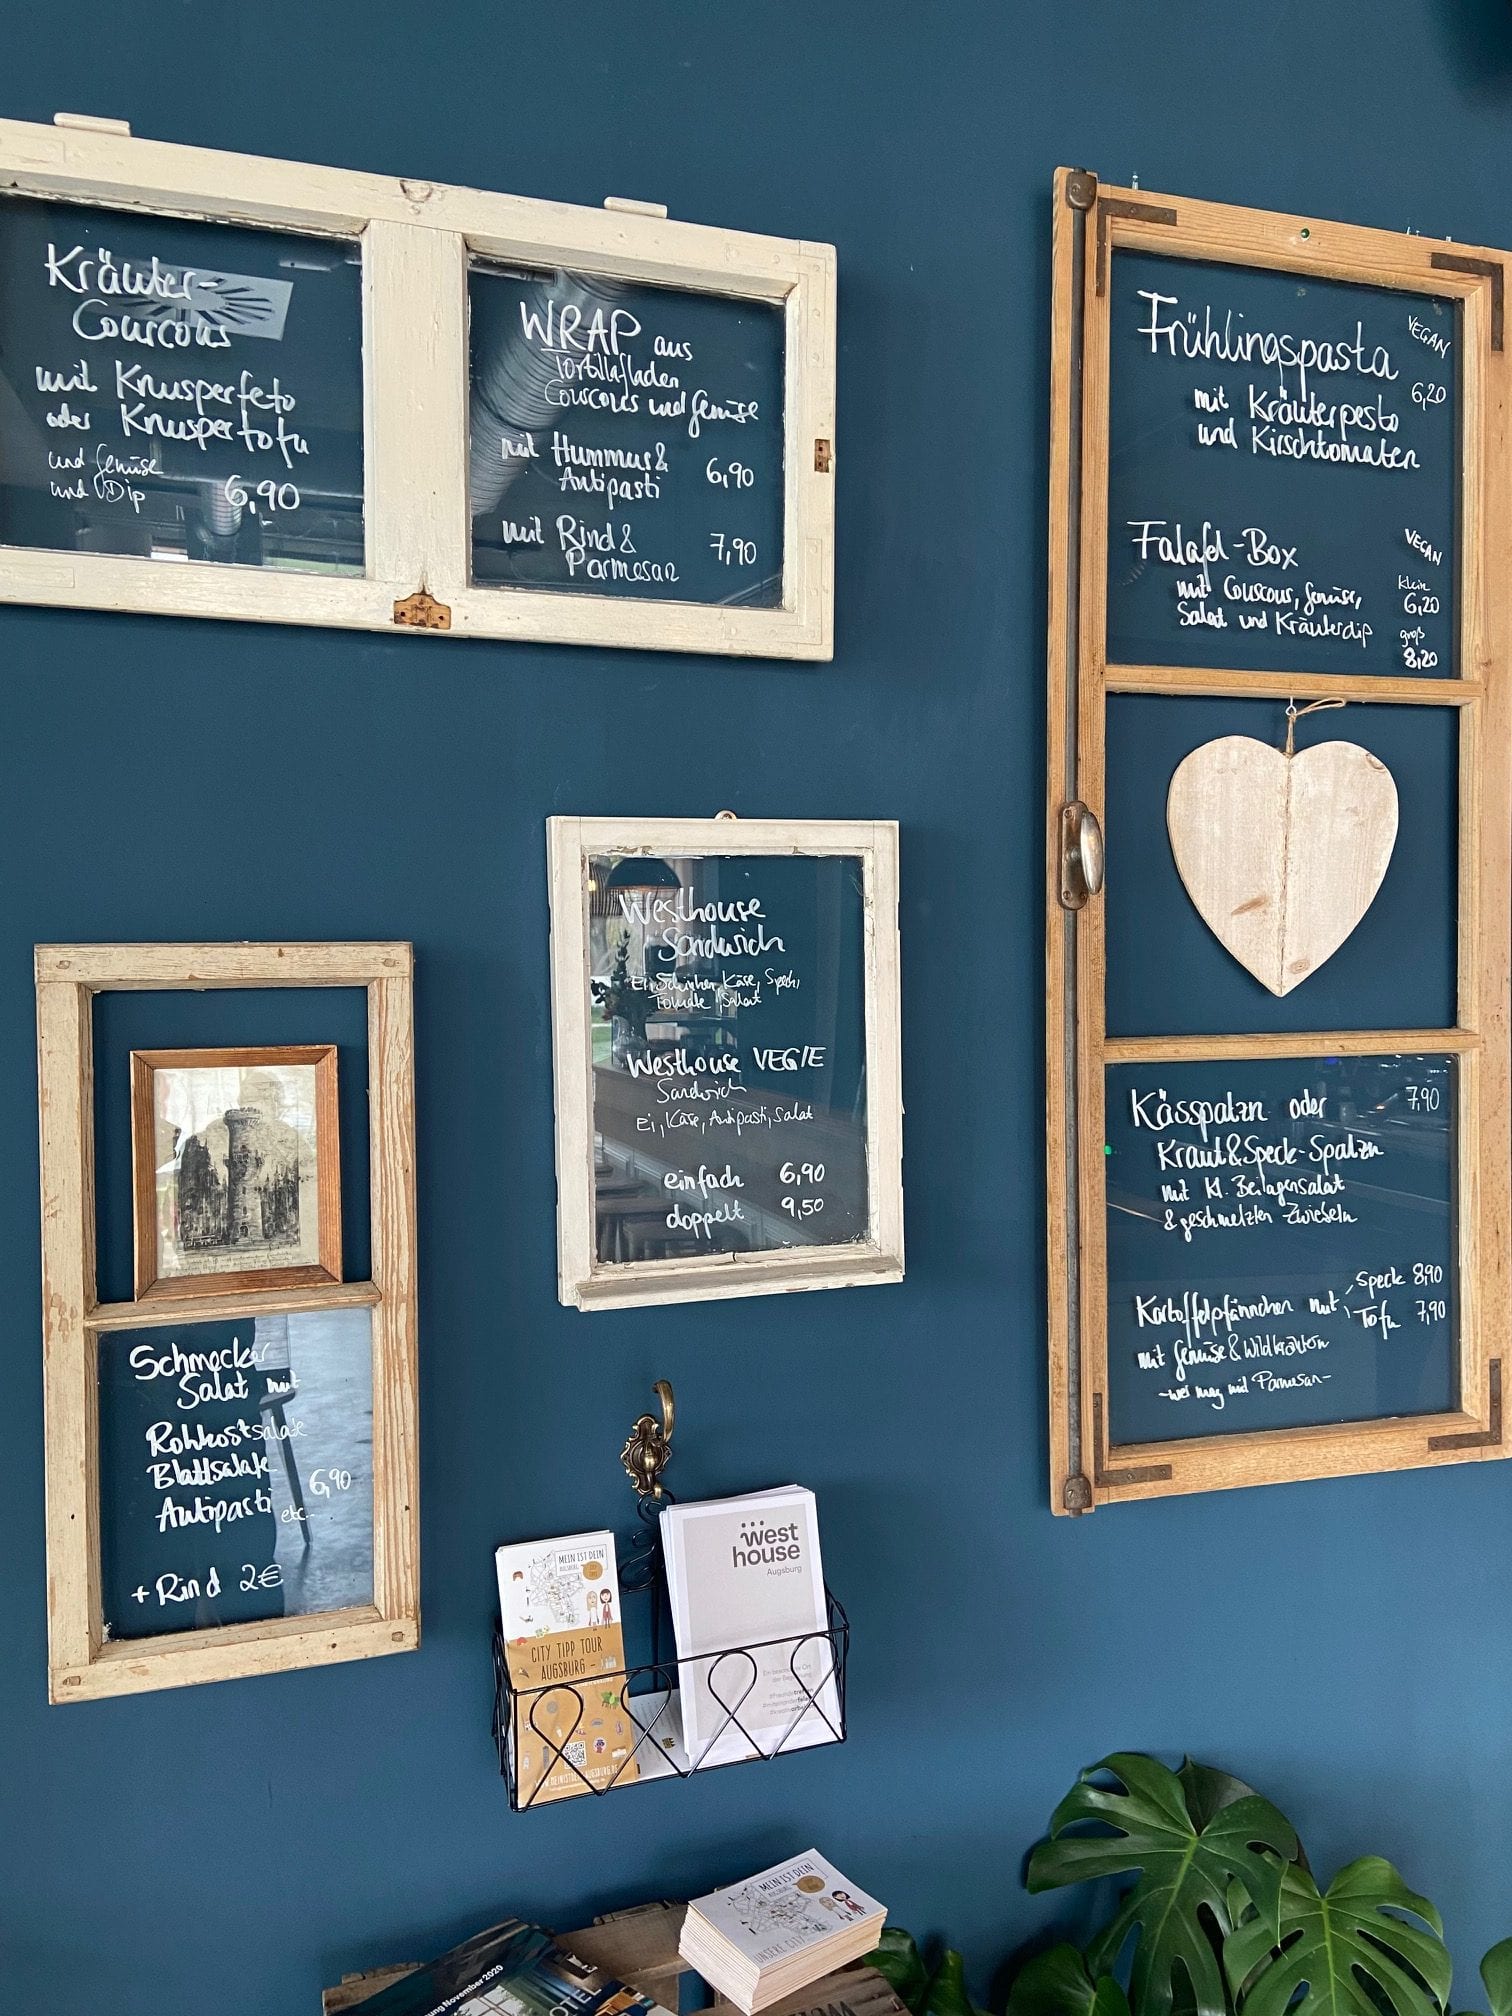 Kräuter-
Couscous
mit Knusperfeto
oder Knuspertofu
und Gemüse
und Dip 6,90
WRAP aus
Tortillafladen
Couscous und Gemüse
mit Hummus &
Antipasti 6,90
mit Rind &
Parmesan 7,90
Frühlingspasta VEGAN
6,20
mit Kräuterpesto
und Kirschtomaten
Falafel-Box VEGAN
mit Couscous, Gemüse,
Salat und Kräuterdip
klein
6,20
groß
8,20
Kässpatzn oder 7,90
Kraut&Speck-Spatzn
mit kl. Beilagensalat
& geschmelzten Zwiebeln
Kartoffelpfännchen mit Speck 8,90
Tofu 7,90
mit Gemüse & Wildkräutern
-wer mag mit Parmesan-
Westhouse
Sandwich
Ei, Schinken, Käse, Speck,
Tomate, Salat
Westhouse VEGIE
Sandwich
Ei, Käse, Antipasti, Salat
einfach 6,90
doppelt 9,50
Schmecker
Salat mit
Rohkostsalate
Blattsalate
Antipasti etc..
6,90
+ Rind 2€
MEIN IST DEIN
AUGSBURG
CITY TIPP TOUR
AUGSBURG -
WWW.MEINISTDEIN-AUGSBURG.DE
west
house
Augsburg
Ein besonderer Ort
der Begegnung
MEIN IST DEIN
AUGSBURG
UNSERE CITY
November 2020